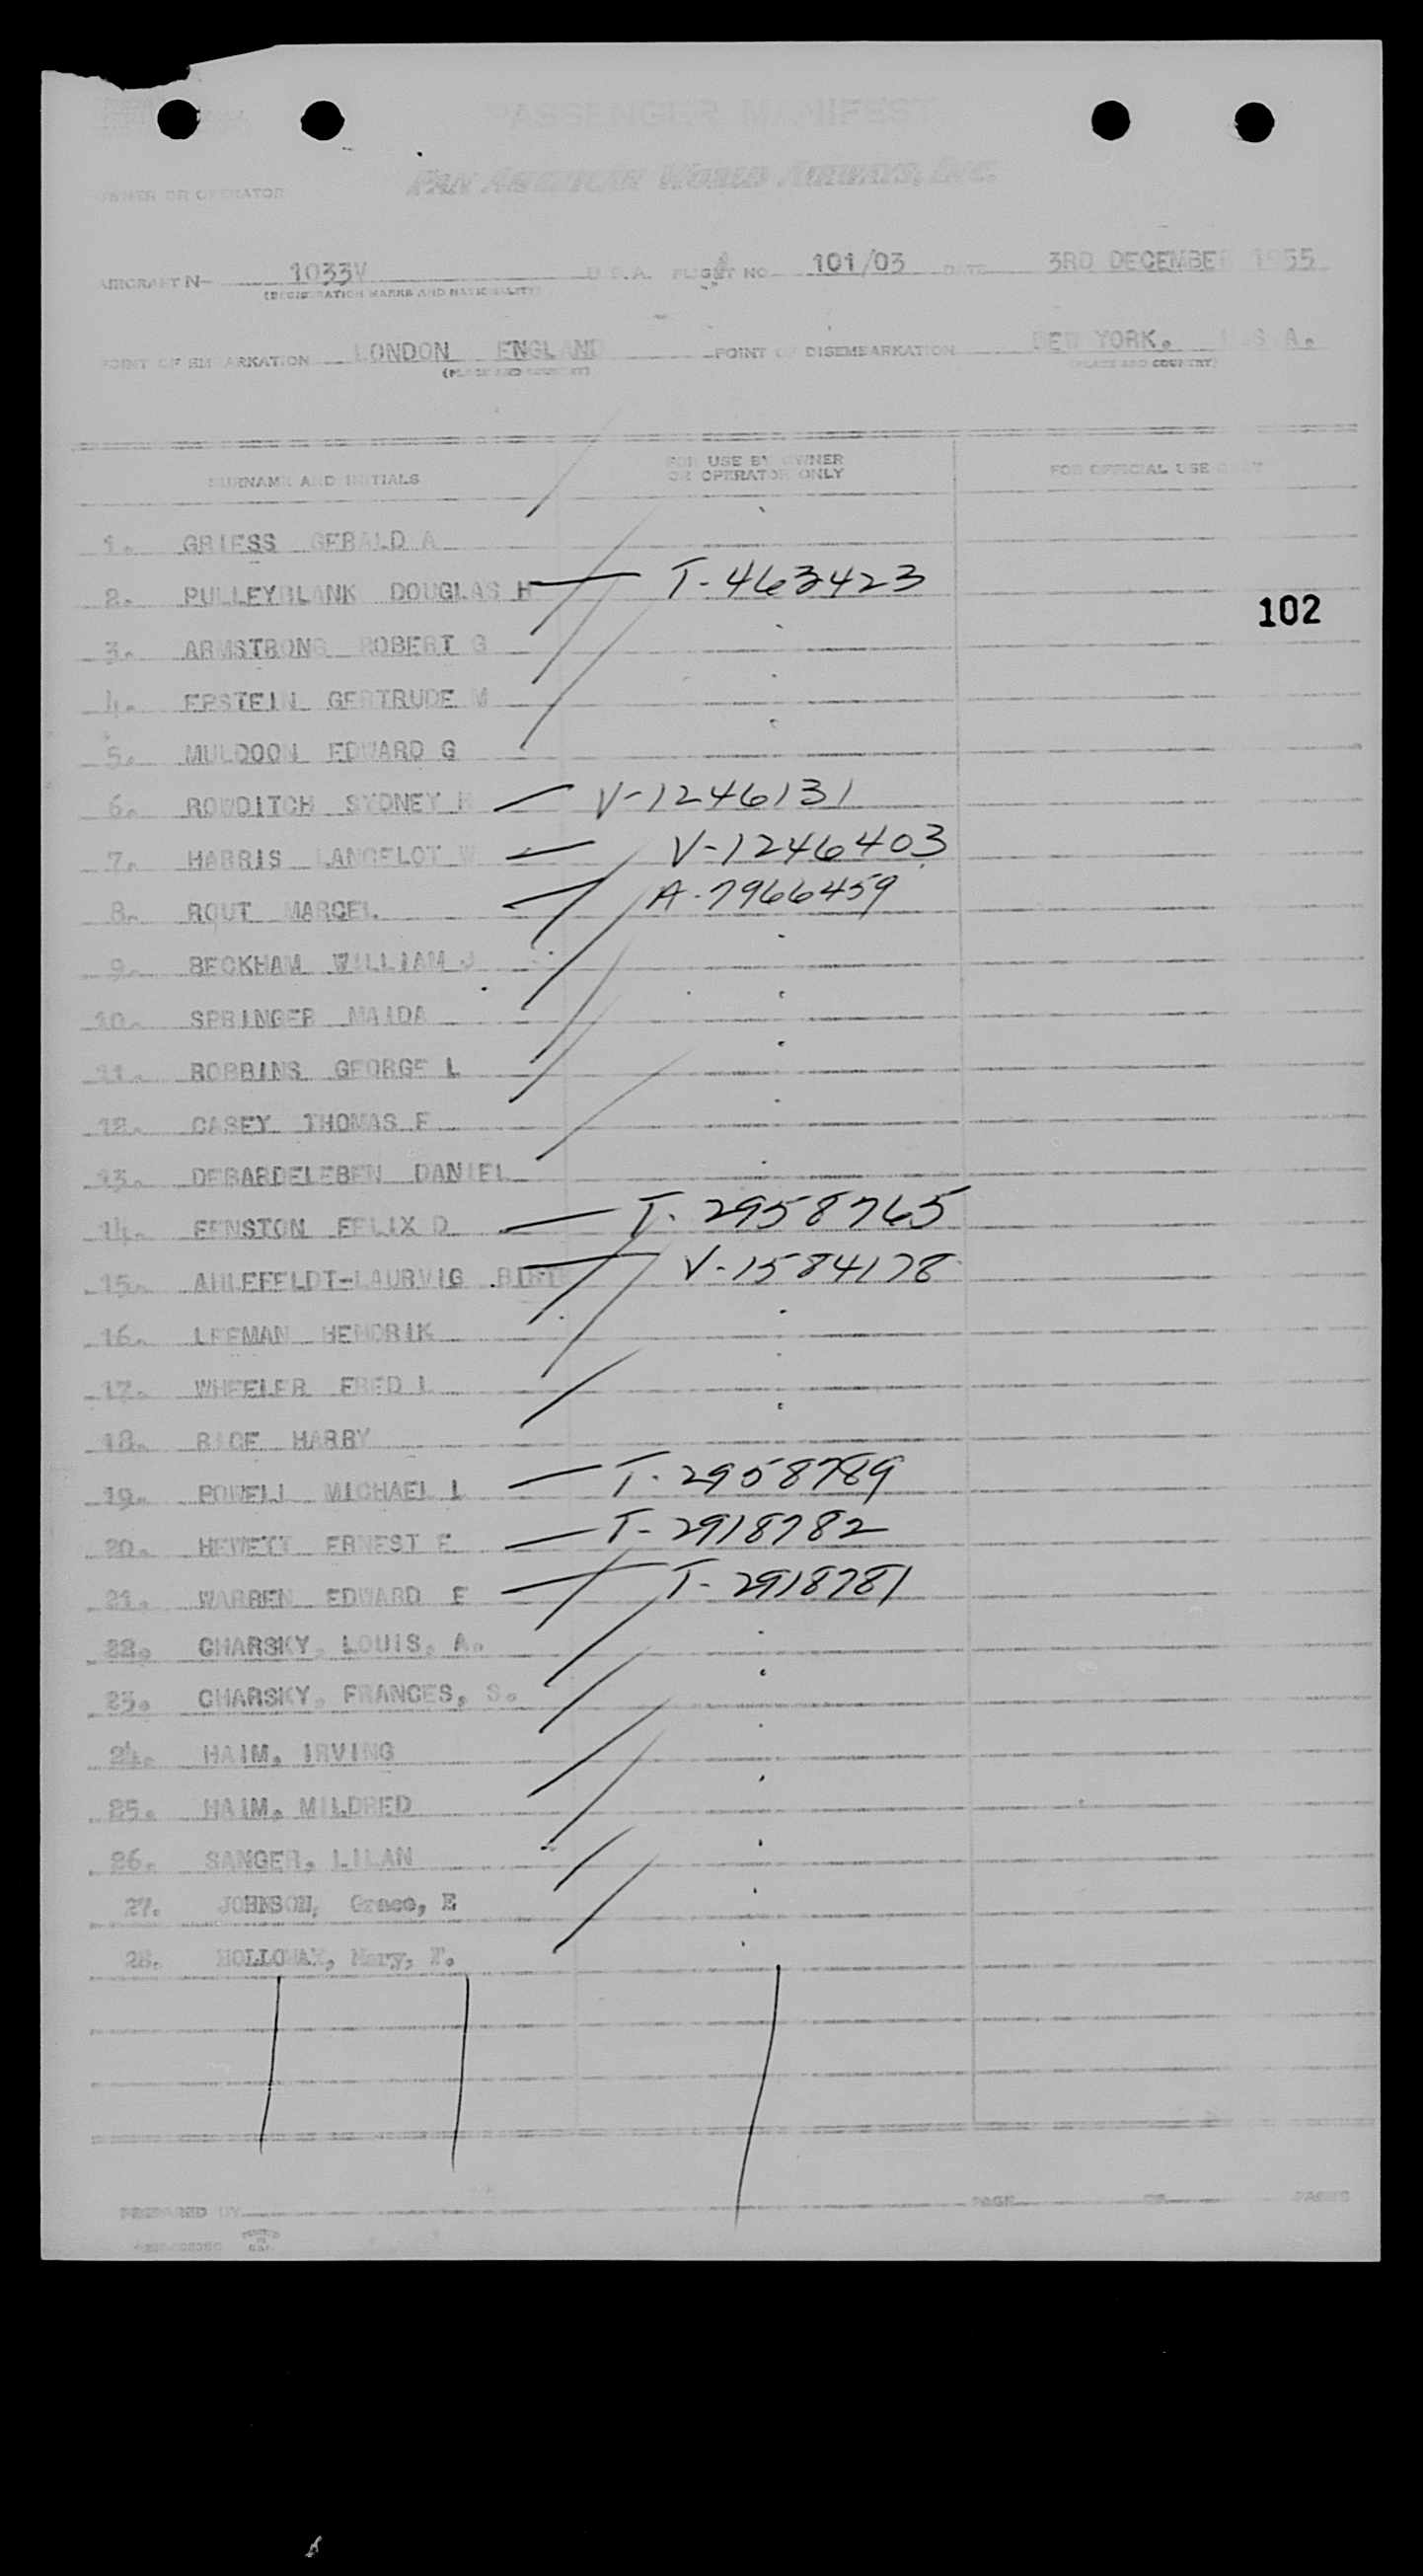 PASSENGER MANIFEST
PAN AMERICAN WORLD AIRWAYS, INC.
OWNER OR OPERATOR
AIRCRAFT N- 1033V U.S.A. FLIGHT NO 101/03 DATE 3RD DECEMBER 1955
(REGISTRATION MARKS AND NATIONALITY)
POINT OF EMBARKATION LONDON ENGLAND POINT OF DISEMBARKATION NEW YORK. U.S.A.
(PLACE AND COUNTRY) (PLACE AND COUNTRY)
SURNAME AND INITIALS FOR USE BY OWNER OR OPERATOR ONLY FOR OFFICIAL USE ONLY
1. GRIESS GERALD A
2. PULLEYBLANK DOUGLAS H T-463423
102
3. ARMSTRONG ROBERT G
4. EPSTEIN GERTRUDE M
5. MULDOON EDWARD G
6. ROWDITCH SYDNEY H V-1246131
7. HARRIS LANCELOT W V-1246403
8. ROUT MARCEL A-7966459
9. BECKHAM WILLIAM J
10. SPRINGER MAIDA
11. ROBBINS GEORGE L
12. CASEY THOMAS F
13. DEBARDELEBEN DANIEL
14. FENSTON FELIX D T-2958765
15. AHLEFELDT-LAURVIG V-1584178
16. LEEMAN HENDRIK
17. WHEELER FRED L
18. RICE HARRY
19. POWELL MICHAEL L T-2958789
20. HEWETT ERNEST E T-2918782
21. WARREN EDWARD E T-2918781
22. CHARSKY, LOUIS, A.
23. CHARSKY, FRANCES, S.
24. HAIM, IRVING
25. HAIM, MILDRED
26. SANGER, LILAN
27. JOHNSON, Grace, E
28. HOLLOWAY, Mary, F.
PREPARED BY PAGE OF PAGES